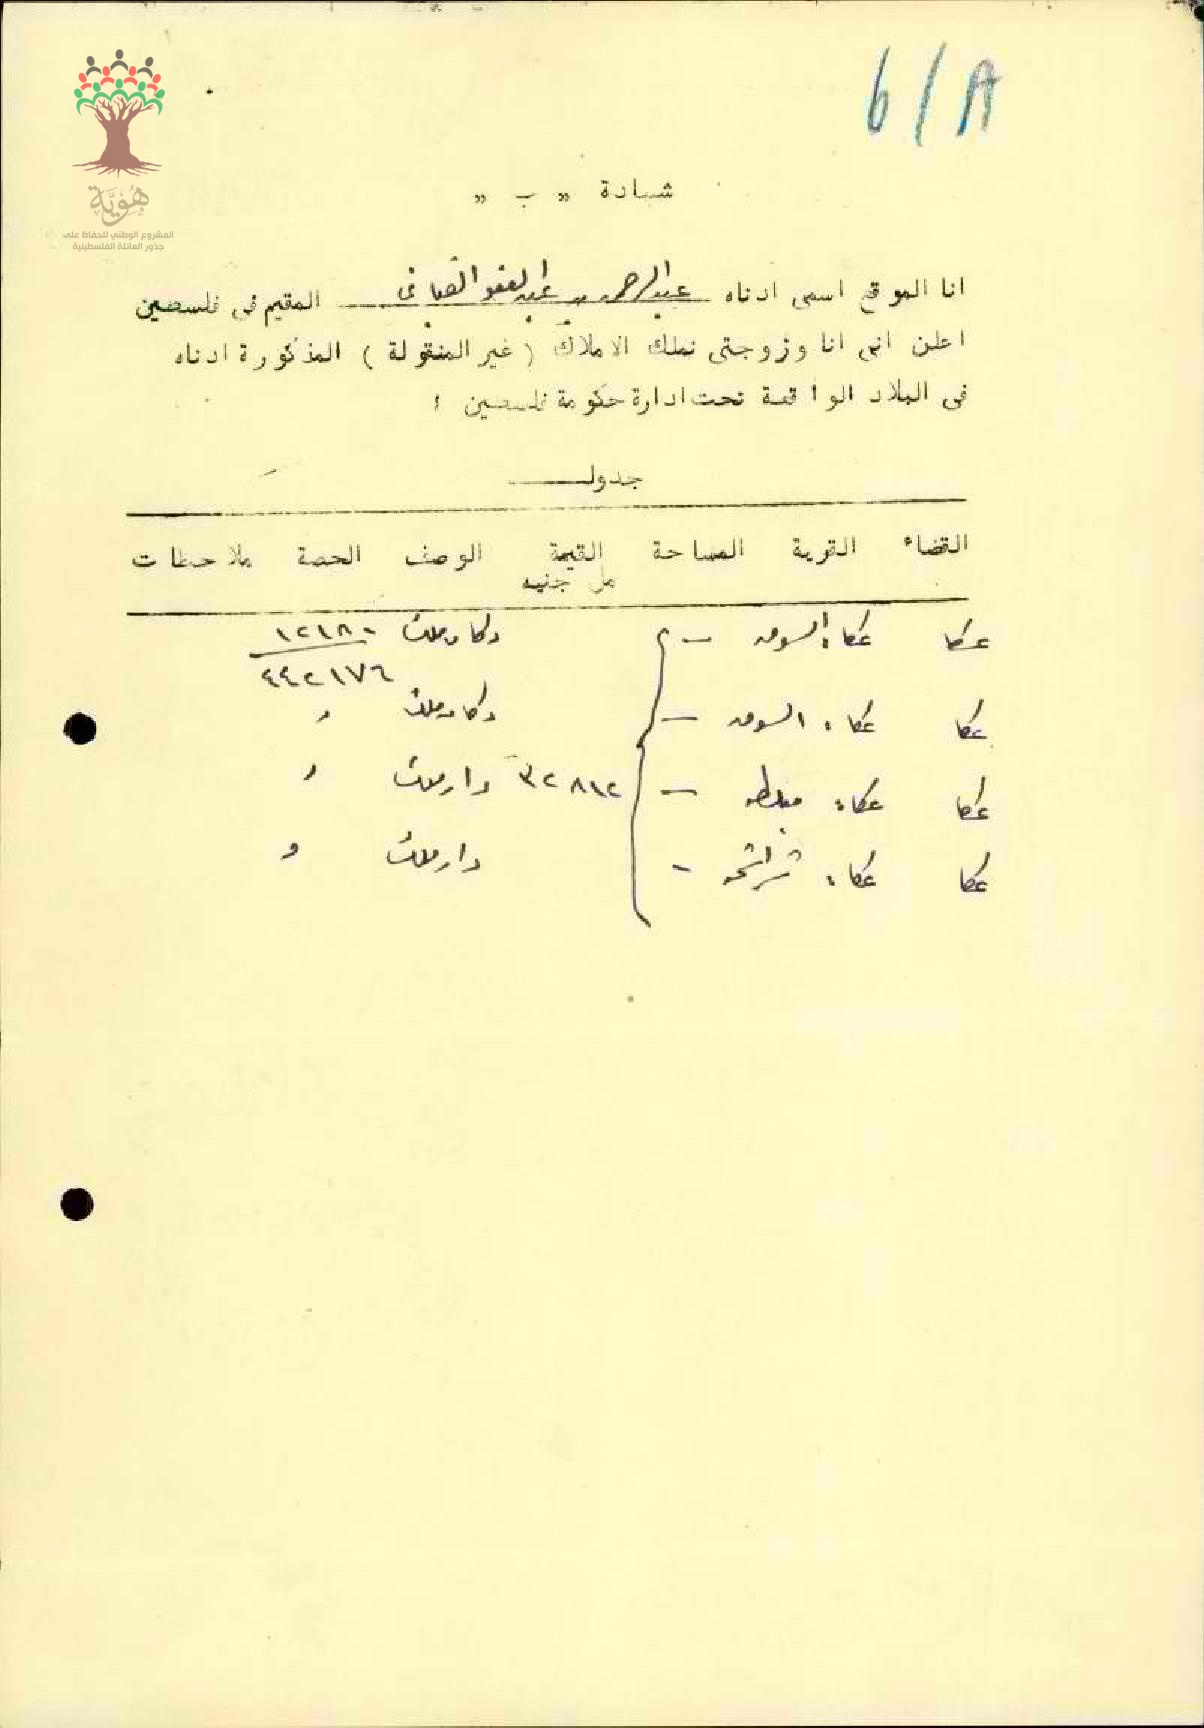 6/A
هُوِيَّة
المشروع الوطني للحفاظ على
جذور العائلة الفلسطينية
شهادة " ب "
انا الموقع اسمى ادناه عبد الرحمن عبد العفو المقيم فى فلسطين
اعلن انى انا وزوجتى نملك الاملاك ( غير المنقولة ) المذكورة ادناه
فى البلاد الواقعة تحت ادارة حكومة فلسطين :
جدول
القضاء القرية المساحة القيمة الوصف الحصة ملاحظات
مل جنيه
عكا عكا، السوق — دكان ملك ١٢١٨٠
٤٤٢١٧٦
عكا عكا، السوق — دكان ملك "
عكا عكا، — ٣٢٨١٢ دار ملك "
عكا عكا، — دار ملك "